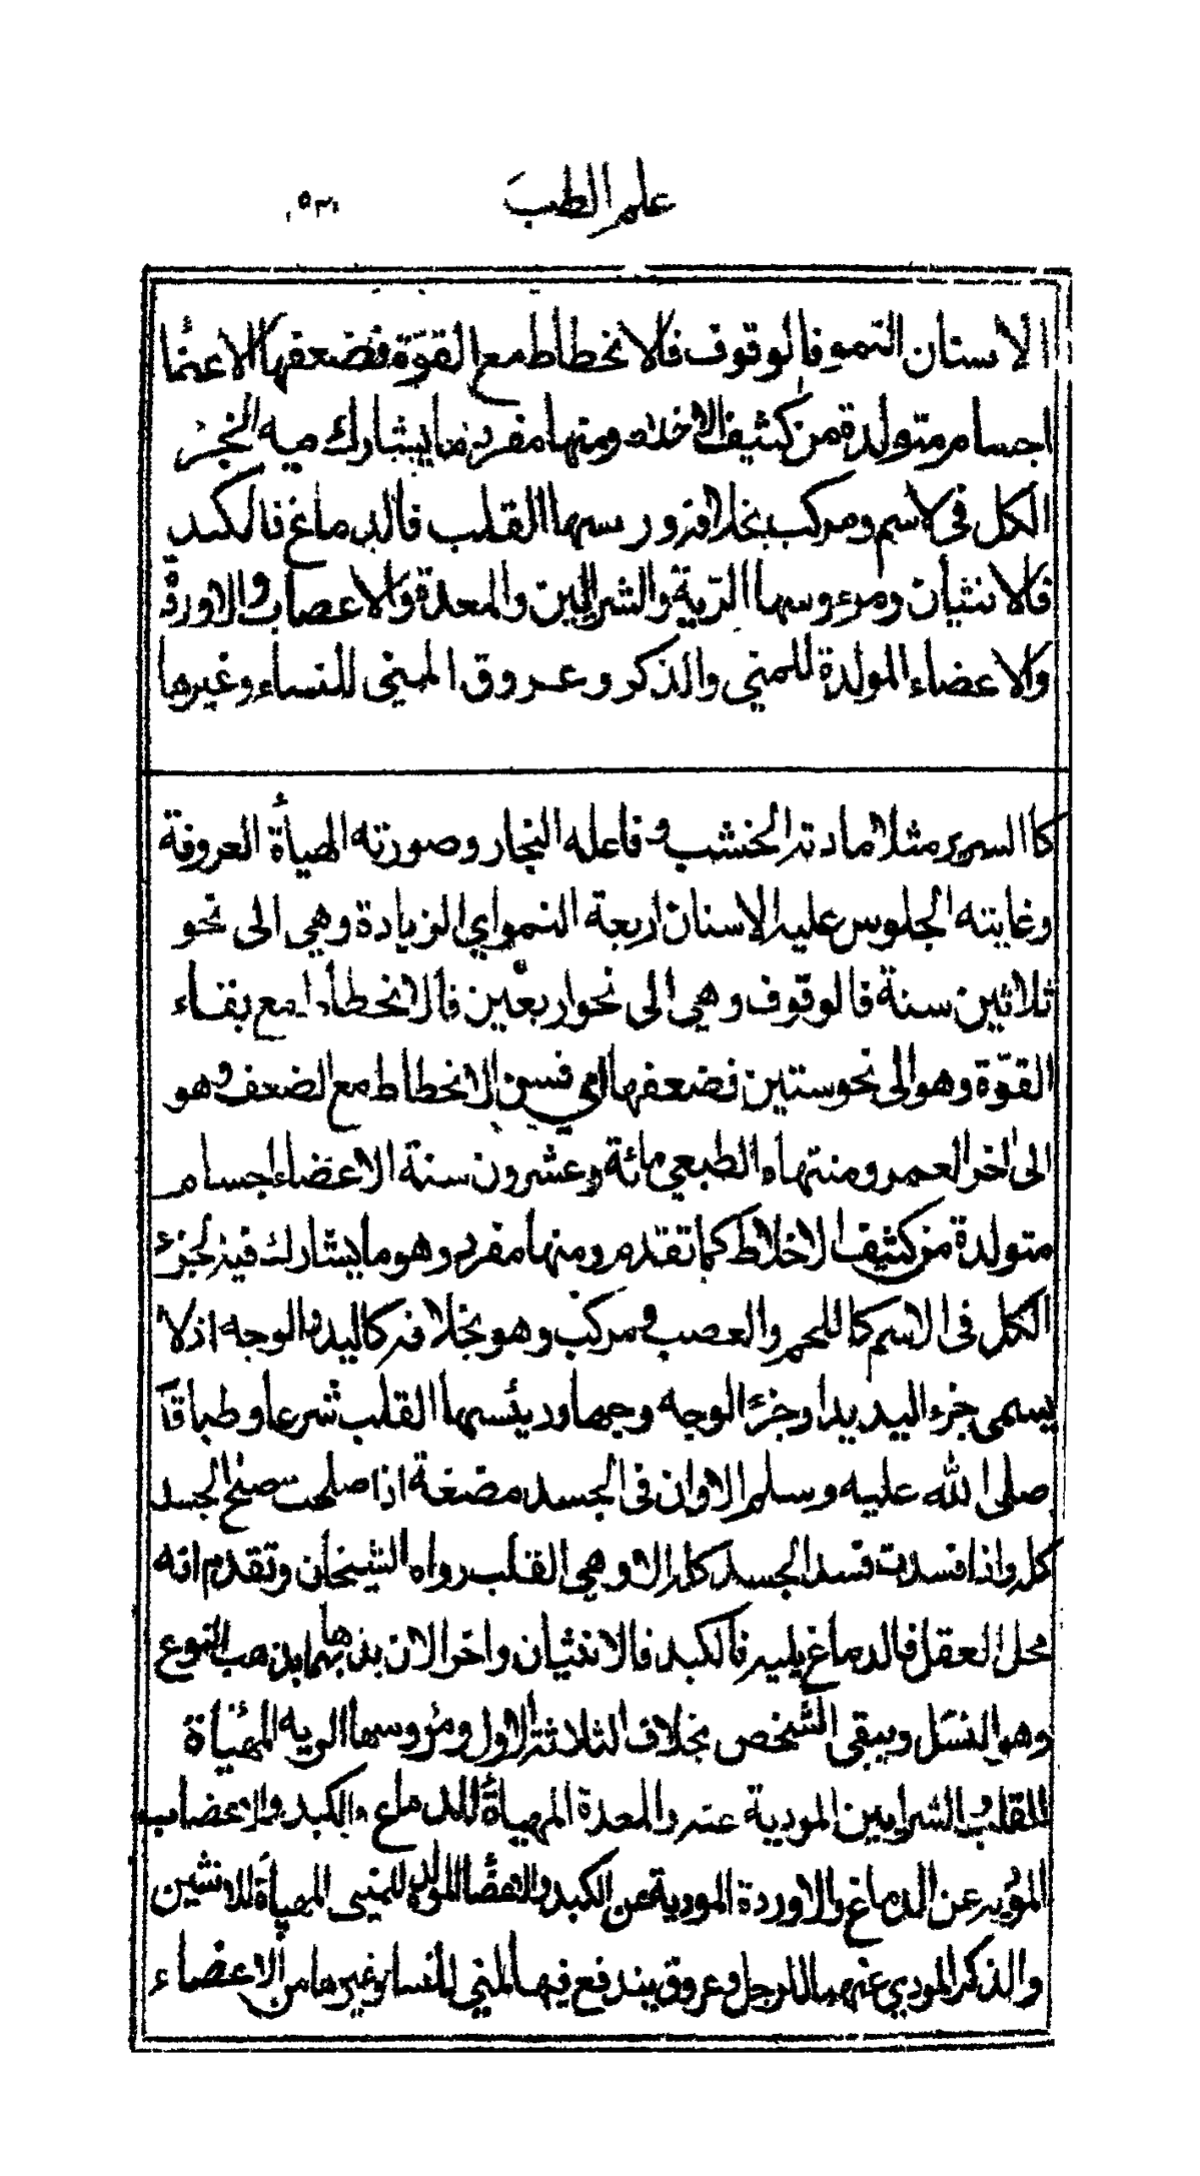 علم الطب ١٥٣
الاسنان النمو فالوقوف فالانحطاط مع القوة فضعفها الاعضا
اجسام متولدة من كثيف الاخلاط ومنها مفرد ما يشارك فيه الجزء
الكل فى الاسم ومركب بخلافه وريسها القلب فالدماغ فالكبد
فالانثيان ومرءوسها الرية والشرايين والمعدة والاعصاب والاوردة
والاعضاء المولدة للمني والذكر وعروق المني للنساء وغيرها
كاالسرير مثلا مادته الخشب وفاعله النجار وصورته الهيأة العروفة
وغايته الجلوس عليه الاسنان اربعة النمو اي الزيادة وهي الى نحو
ثلاثين سنة فالوقوف وهي الى نحو اربعين فالانحطاط مع بقاء
القوّة وهو الى نحو ستين فضعفها اي فسن الانحطاط مع الضعف وهو
الى اخر العمر ومنتهاه الطبعي مائة وعشرون سنة الاعضاء اجسام
متولدة من كثيف الاخلاط كما تقدم ومنها مفرد وهو ما يشارك فيه الجزء
الكل فى الاسم كاللحم والعصب ومركب وهو بخلافه كاليد والوجه اذ لا
يسمى جزء اليد يدا وجزء الوجه وجها ورئيسها القلب شرعا وطبا قال
صلى الله عليه وسلم الا وان فى الجسد مضغة اذا صلحت صلح الجسد
كله واذا فسدت فسد الجسد كله الا وهي القلب رواه الشيخان وتقدم انه
محل العقل فالدماغ يليه فالكبد فالانثيان واخر الان بذهابهما يذهب النوع
وهو النسل ويبقى الشخص بخلاف الثلاثة الاول ومرؤسها الريه المهيئاة
للقلب والشرايين المودية عنه والمعدة المهيأة للدماغ والكبد والاعضاب
المؤديه عن الدماغ والاوردة المودية عن الكبد والاعضا المولده للمنيى المهيأة للانثيين
والذكر المودي عنهما للرجل وعروق يندفع فيها المني للنسا وغيرها من الاعضاء